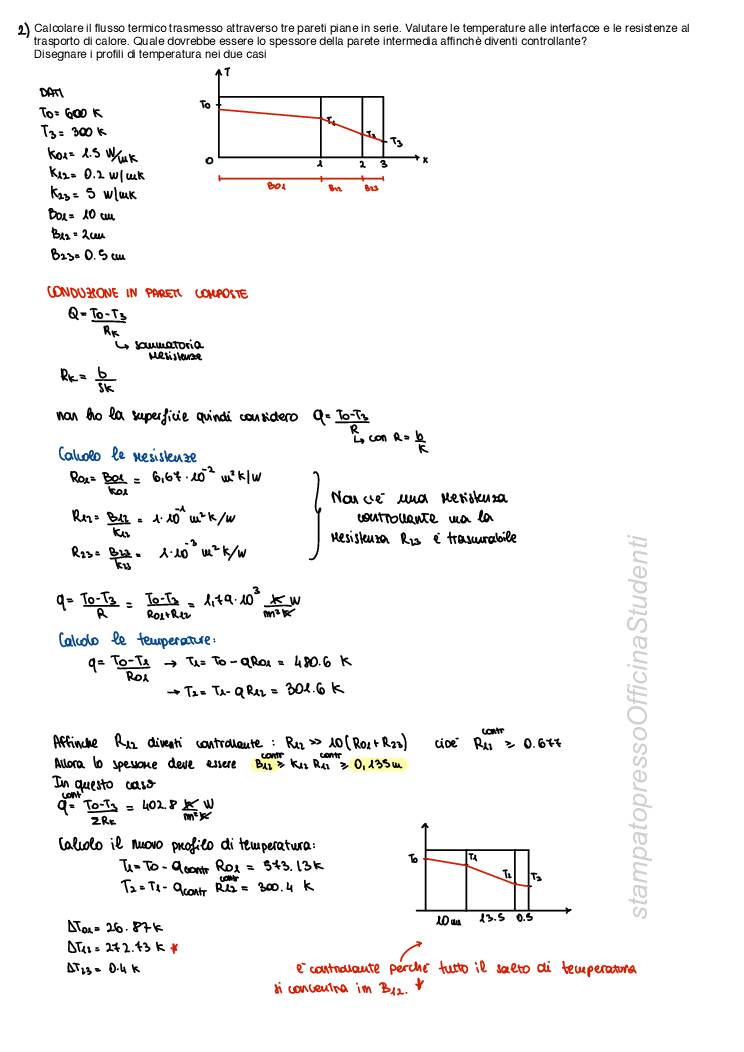 2) Calcolare il flusso termico trasmesso attraverso tre pareti piane in serie. Valutare le temperature alle interfacce e le resistenze al
trasporto di calore. Quale dovrebbe essere lo spessore della parete intermedia affinchè diventi controllante?
Disegnare i profili di temperatura nei due casi
DATI
T0 = 600 K
T3 = 300 K
K01 = 1.5 W/mK
K12 = 0.2 W/mK
K23 = 5 W/mK
B01 = 10 cm
B12 = 2cm
B23 = 0.5 cm
T
T0
T1
T2
T3
0
1
2
3
x
B01
B12
B23
CONDUZIONE IN PARETI COMPOSTE
Q = T0-T3/RK
↳ sommatoria
resistenze
RK = b/SK
non ho la superficie quindi considero q = T0-T3/R
↳ con R = b/K
Calcolo le resistenze
R01 = B01/K01 = 6,67·10^-2 m²K/W
R12 = B12/K12 = 1·10^-1 m²K/W
R23 = B23/K23 = 1·10^-3 m²K/W
Non c'è una resistenza
controllante ma la
resistenza R23 è trascurabile
q = T0-T3/R = T0-T3/R01+R12 = 1,79·10³ K W/m²K
Calcolo le temperature:
q = T0-T1/R01 → T1 = T0 - qR01 = 480.6 K
→ T2 = T1 - qR12 = 301.6 K
Affinchè R12 diventi controllante : R12 >> 10(R01+R23) cioè R12^contr ≥ 0.677
Allora lo spessore deve essere B12^contr ≥ K12 R12^contr ≥ 0,135m
In questo caso
q^contr = T0-T3/ΣRK = 402.8 K W/m²K
Calcolo il nuovo profilo di temperatura:
T1 = T0 - qcontr R01 = 573.13K
T2 = T1 - qcontr R12^contr = 300.4 K
ΔT01 = 26.87K
ΔT12 = 272.73 K *
ΔT23 = 0.4 K
T0
T1
T2
T3
10 cm
13.5
0.5
è controllante perchè tutto il salto di temperatura
si concentra in B12. *
stampatopressoOfficinaStudenti